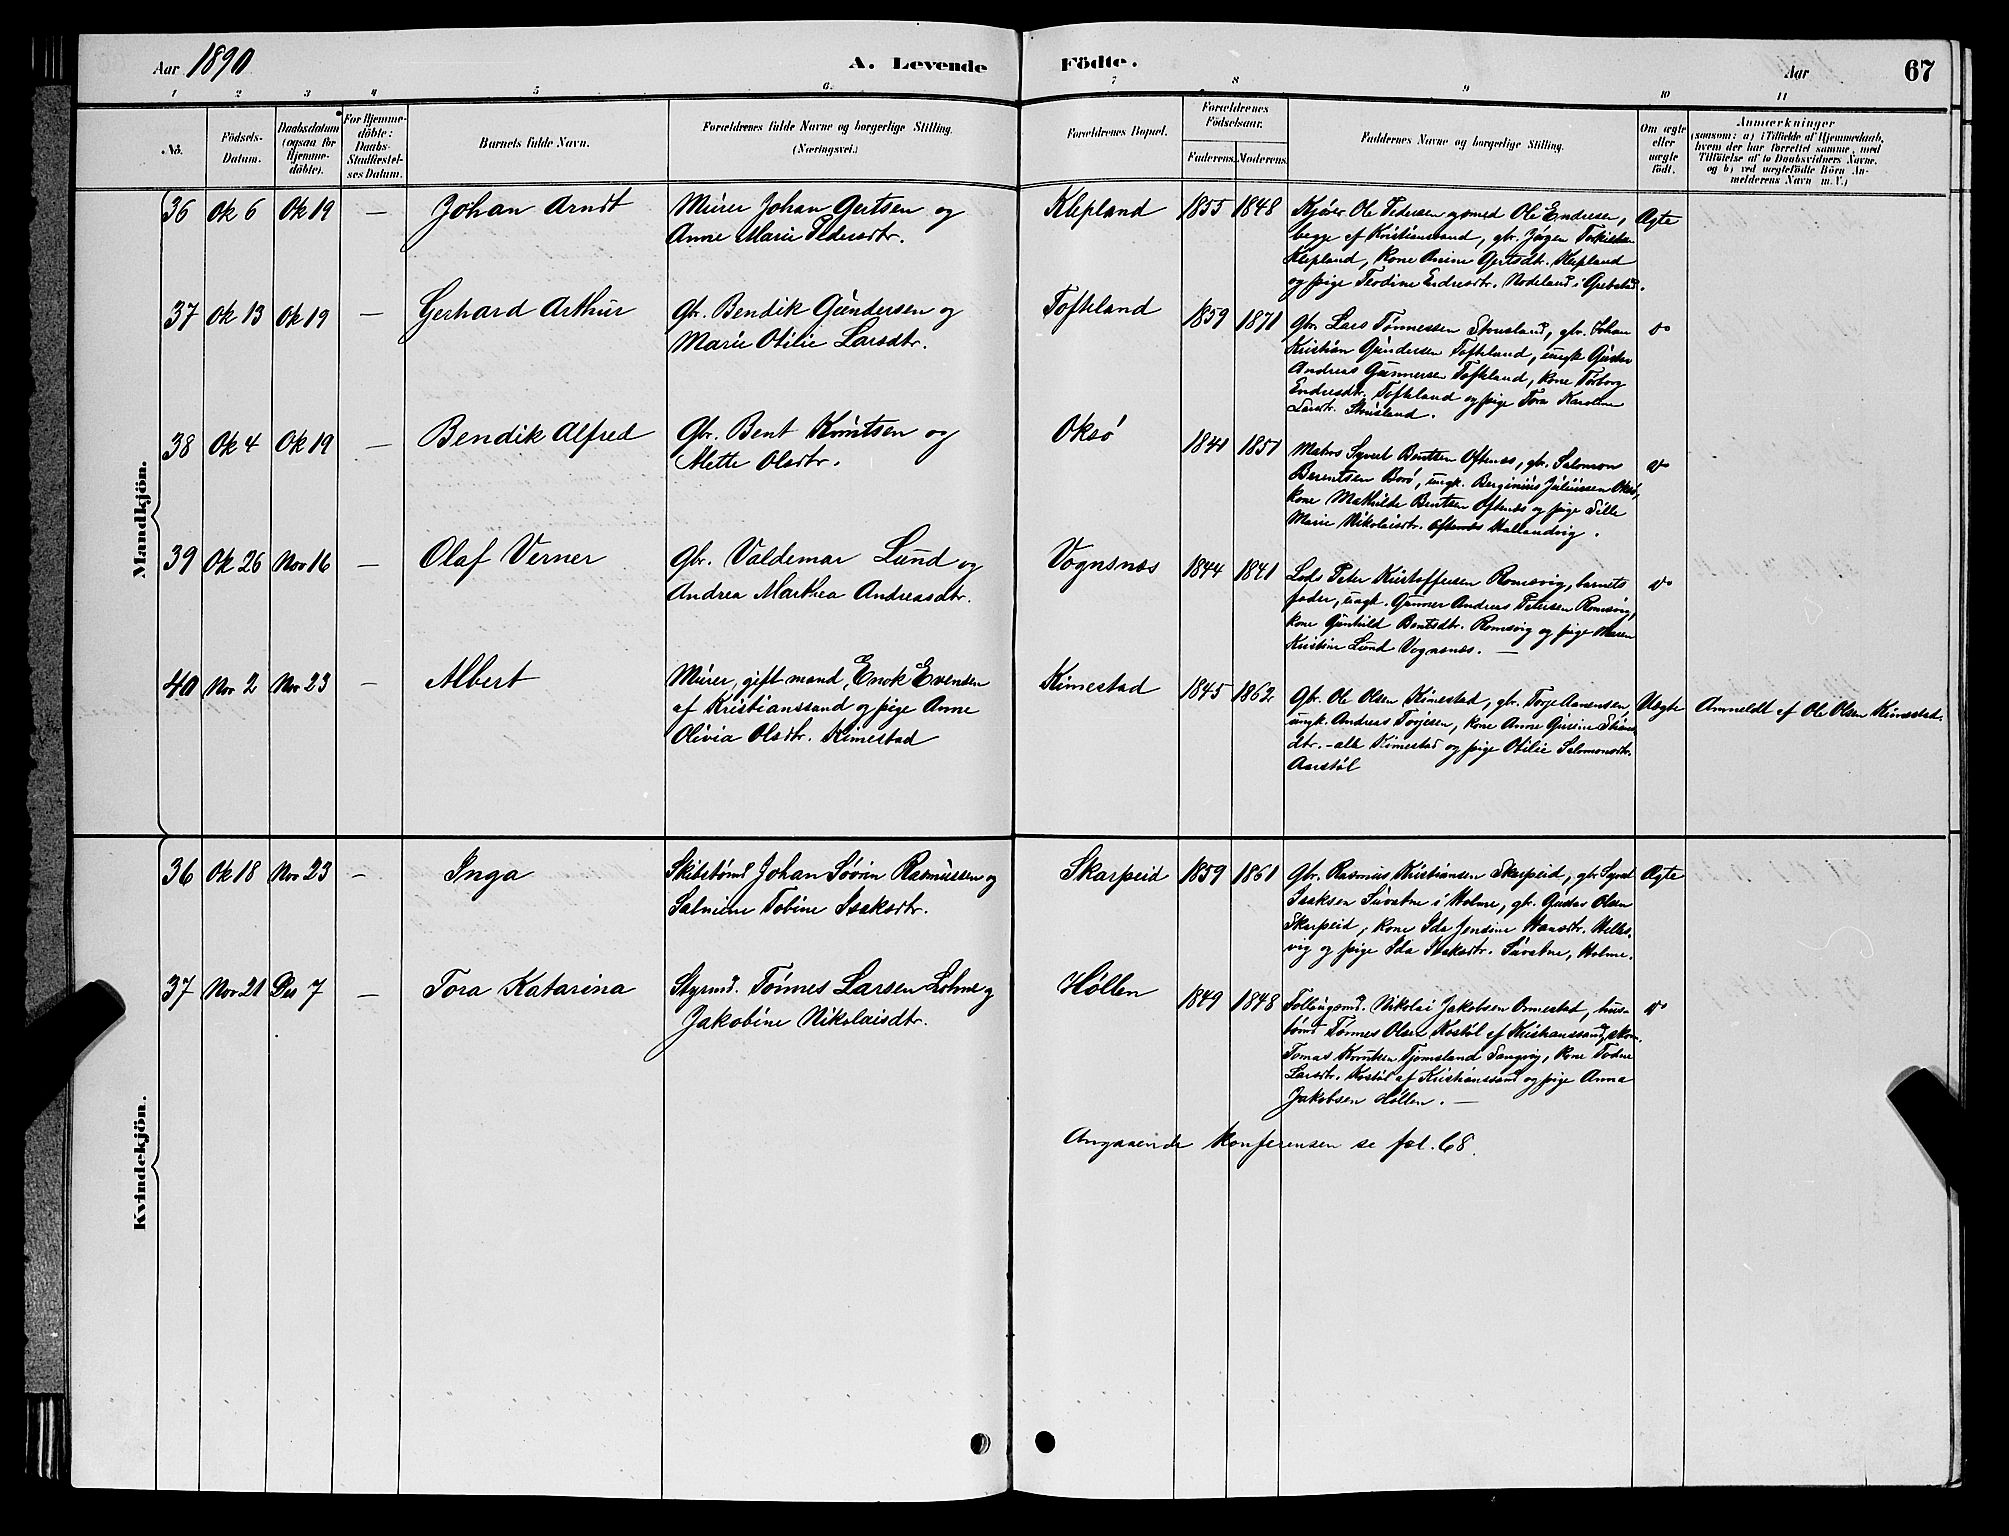 Aar 1890
A. Levende Födte.
Aar
67
1 2 3 4 5 6. 7 8 9 10 11
No.
Födsels-Datum.
Daabsdatum (ogsaa for Hjemme-döbte).
For Hjemme-döbte: Daabs-Stadfæstel-ses Datum.
Barnets fulde Navn.
Forældrenes fulde Navne og borgerlige Stilling.
(Næringsvei.)
Forældrenes Bopæl.
Forældrenes Födselsaar.
Faderens. Moderens.
Faddernes Navne og borgerlige Stilling.
Om ægte eller uægte født.
Anmærkninger
(saasom: a) i Tilfælde af Hjemmedaab,
hvem der har forrettet samme, med
Tilföielse af to Daabsvidners Navne,
og b) ved uægtefödte Börn An-
melderens Navn m. V.)
Mandkjön.
36 Ok 6 Ok 19 — Johan Arndt
Murer Johan Gertsen og
Anne Marie Pedersdtr.
Klepland 1855 1848
Kjøbm. Ole Pedersen og smed Ole Endresen,
begge af Kristianssand, gbr. Jørgen
Klepland, kone Gertsdtr. Klepland
og pige Teodine Endresdtr. Nodeland i Grebstad.
Ægte
37 Ok 13 Ok 19 — Gerhard Arthur
Gbr. Bendik Gundersen og
Marie Otilie Larsdtr.
Toftland 1859 1871
Gbr. Lars Tønnessen Strusland, gbr. Johan
Kristian Gundersen Toftland, ungk. Gustav
Andreas Gunnersen Toftland, kone Torborg
Endresdtr. Toftland og pige Tora Karoline
Larsdtr. Strusland.
do
38 Ok 4 Ok 19 — Bendik Alfred
Gbr. Bent Knutsen og
Mette Olsdtr.
Oksø 1841 1851
Matros Syvert Bentsen Oftenes, gbr. Salomon
Berentsen Borø, ungk. Berginius Juliussen Oksø,
kone Mathilde Bentsen Oftenes og pige Sille
Marie Nikolaisdtr. Hallandvig.
do
39 Ok 26 Nov 16 — Olaf Verner
Gbr. Valdemar Lund og
Andrea Marthea Andreasdtr.
Vognsnæs 1844 1841
Lods Peter Kristoffersen Romsvig, barnets
fader, ungk. Gunner Andreas Petersen Romsvig,
kone Gunhild Bentsdtr. Romsvig og pige Maren
Kristine Lund Vognsnæs. —
do
40 Nov 2 Nov 23 — Albert
Murer, gift mand, Enok Evensen
af Kristianssand og pige Anne
Olivia Olsdtr. Kimestad
Kimestad 1845 1862
Gbr. Ole Olsen Kimestad, gbr. Torje Aanensen,
ungk. Andreas Torjesen, kone Anne Gurine
dtr. – alle Kimestad og pige Otilie Salomonsdtr.
Aarstøl
Uægte
Anmeldt af Ole Olsen Kimestad.
Kvindekjön.
36 Ok 18 Nov 23 — Inga
Skibstømd. Johan Søvrin Rasmussen og
Salvine Tobine Isaksdtr.
Skarpeid 1859 1861
Gbr. Rasmus Kristiansen Skarpeid, gbr. Syvert
Isaksen Suvatne i Holme, gbr. Gustav Olsen
Skarpeid, kone Ida Jensine Hansdtr. Helle-
vig og pige Ida Isaksdtr. Suvatne, Holme.
Ægte
37 Nov 21 Des 7 — Tora Katarina
Styrmd. Tønnes Larsen Lohne og
Jakobine Nikolaisdtr.
Høllen 1849 1848
Follaugsmd. Nikolai Jakobsen Ormestad, hus-
tømd. Tønnes Olsen Kostøl af Kristianssand, skom.
Tomas Knutsen Tjomsland Langvig, kone Todne
Larsdtr. Kostøl af Kristianssand og pige Anna
Jakobsen Høllen. —
do
Angaaende konferensen se fol. 68.